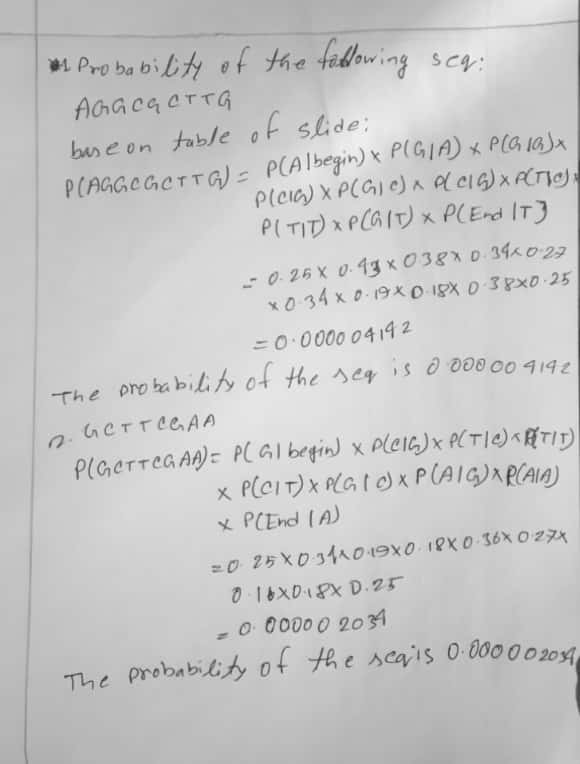 1 Probability of the following seq:
AGGCGCTTG
base on table of slide:
P(AGGCGCTTG) = P(A|begin) x P(G|A) x P(G|G) x
P(C|G) x P(G|C) x P(C|G) x P(T|C) x
P(T|T) x P(G|T) x P(End|T]
= 0.25 x 0.43 x 038 x 0.34 x 0.27
x 0.34 x 0.19 x 0.18 x 0.38 x 0.25
= 0.000004192
The probability of the seq is 0.000004192
2. GCTTCGAA
P(GCTTCGAA) = P(G|begin) x P(C|G) x P(T|C) x P(T|T)
x P(C|T) x P(G|C) x P(A|G) x P(A|A)
x P(End|A)
= 0.25 x 0.34 x 0.19 x 0.18 x 0.36 x 0.27 x
0.16 x 0.18 x 0.25
= 0.000002034
The probability of the seq is 0.000002034